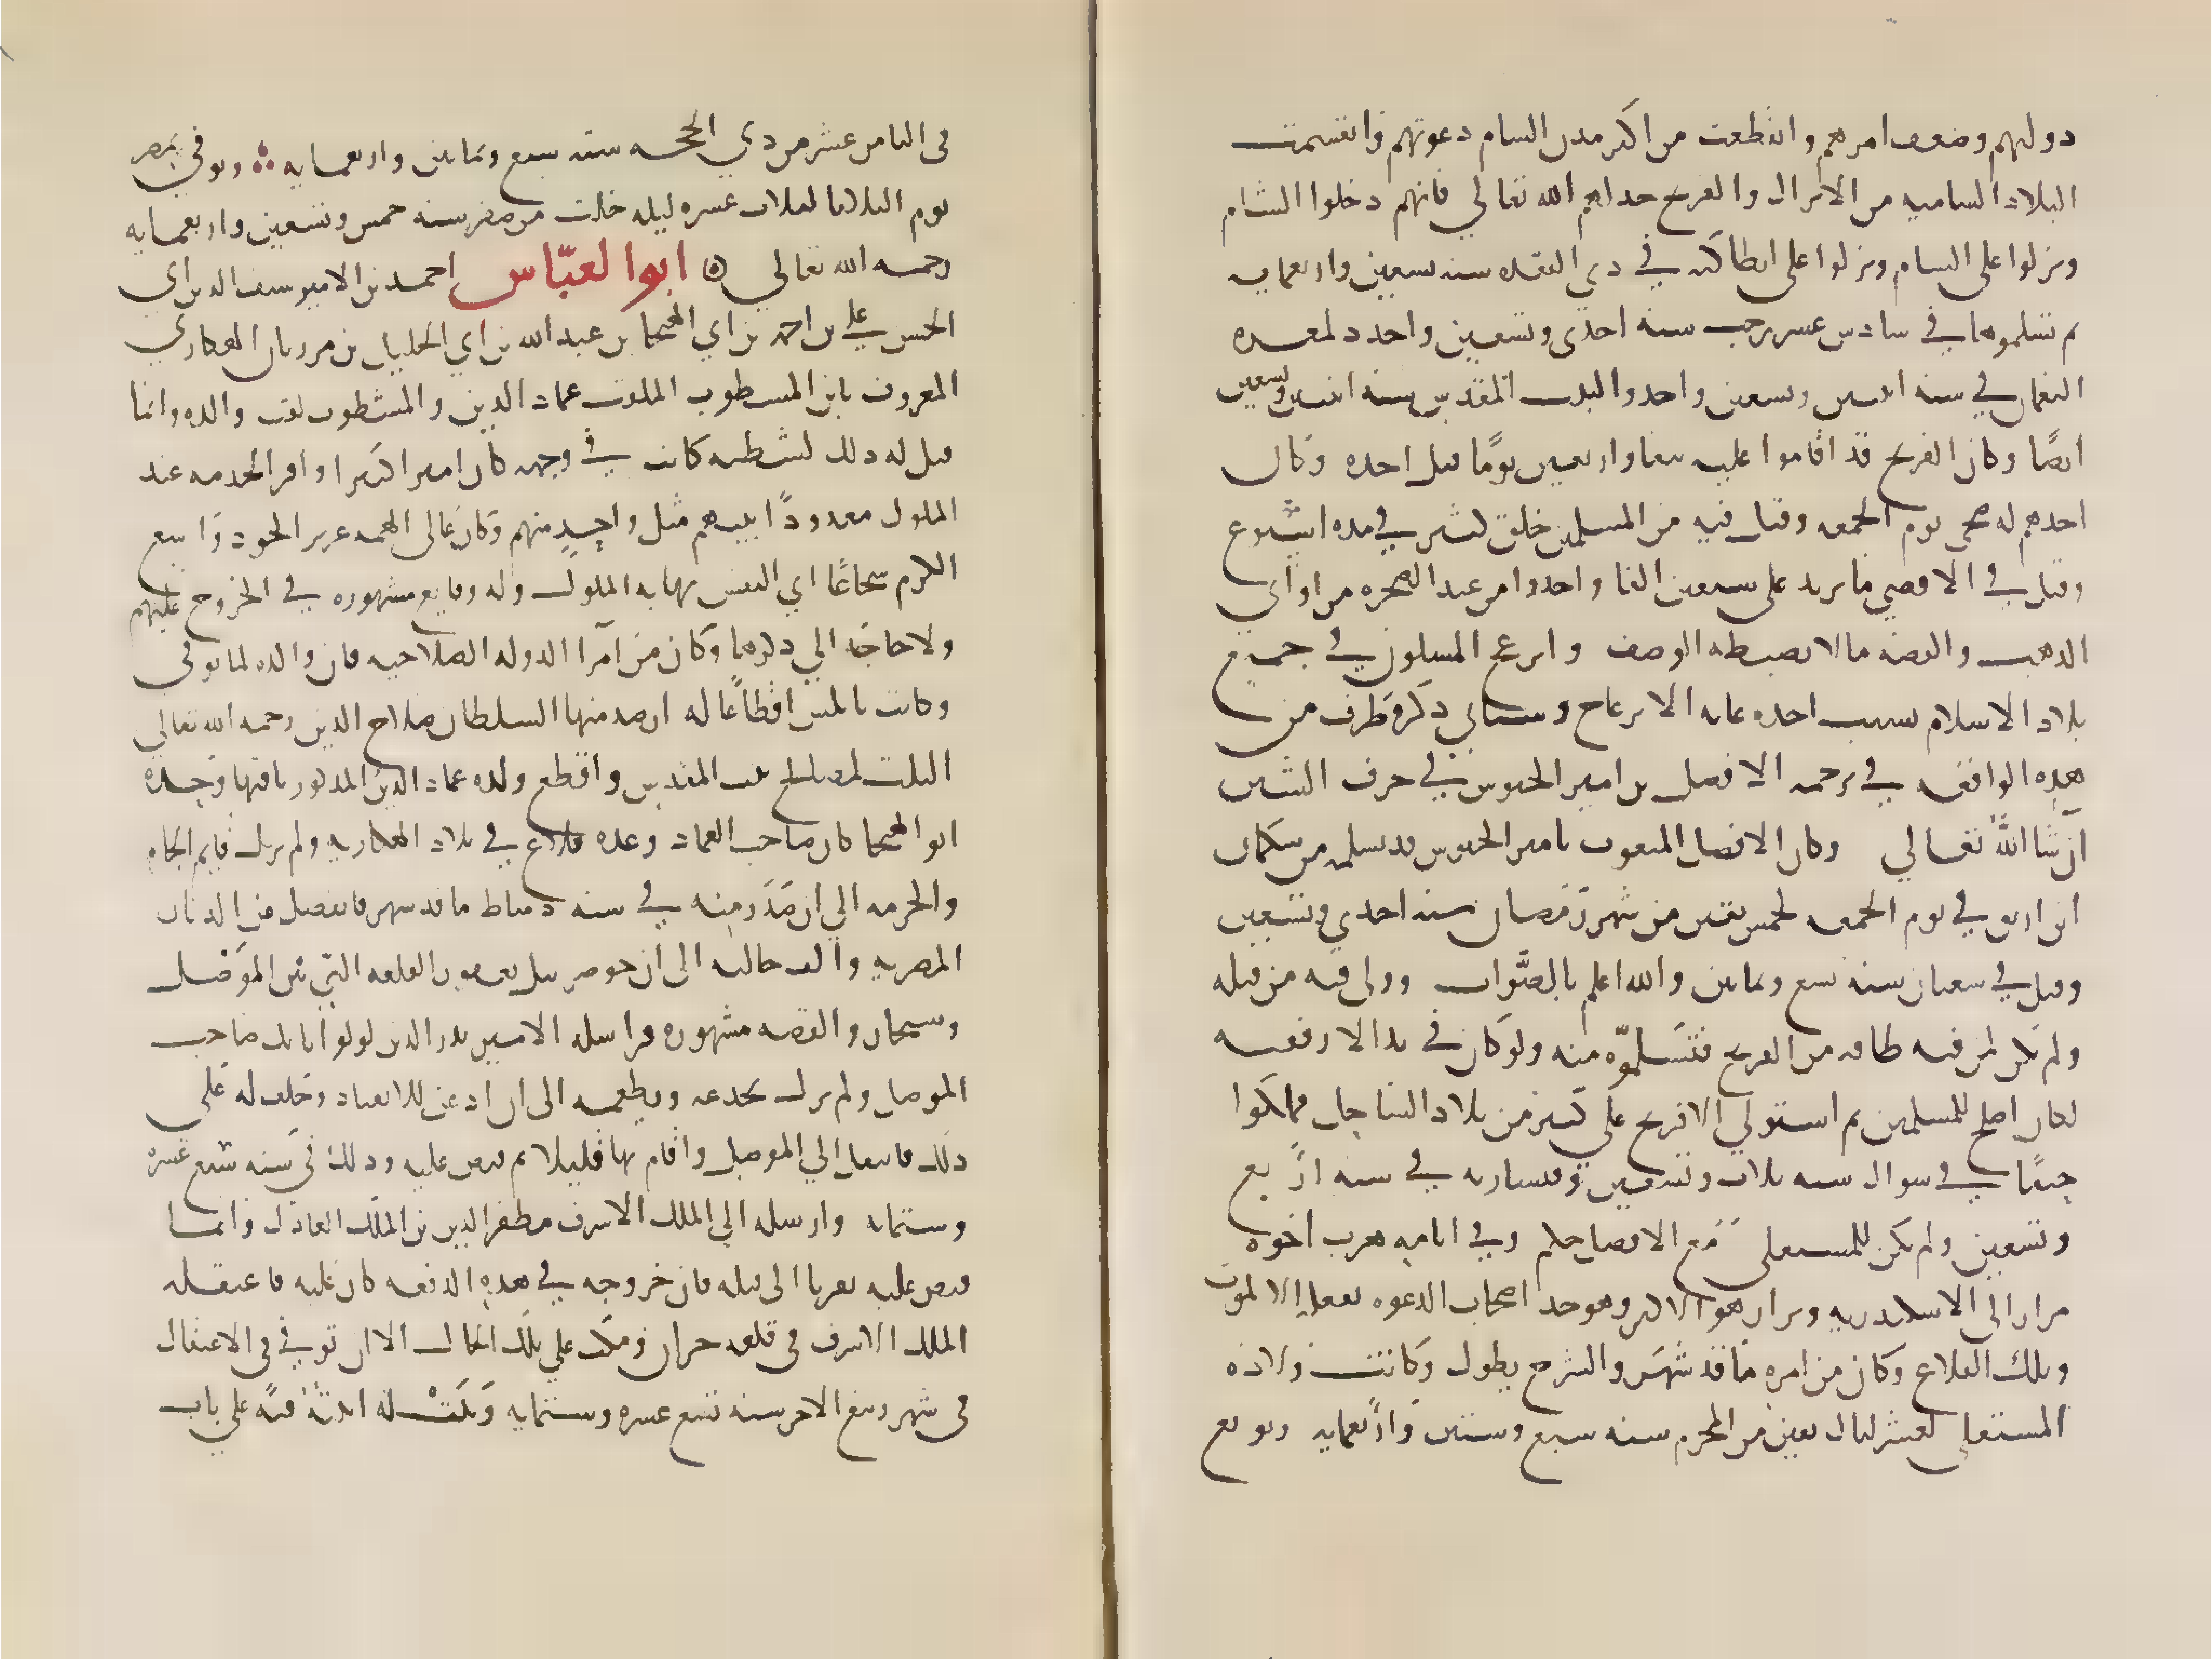 دولتهم وضعف امرهم وانقطعت من اكثر مدن الشام دعوتهم وانقسمت
البلاد الشاميه من الاتراك والفرنج خذلهم الله تعالي فانهم دخلوا الشام
ونزلوا على الشام ونزلوا على انطاكيه في ذي القعده سنه تسعين واربعمايه
ثم تسلموها في سادس عشر رجب سنه احدى وتسعين واخذوا معره
النعمان في سنه اثنتين وتسعين واخذوا البيت المقدس سنه اثنتين وتسعين
ايضًا وكان الفرنج قد اقاموا عليه نيفا واربعين يومًا قبل اخذه وكان
اخذهم له ضحى يوم الجمعه وقتل فيه من المسلمين خلق كثير في مده اسبوع
وقتل في الاقصى ما يزيد على سبعين الفا واخذوا من عند الصخره من اواني
الذهب والفضه مالا يضبطه الوصف وانزعج المسلمون في جميع
بلاد الاسلام بسبب اخذه غايه الانزعاج وسياتي ذكر طرف من
هذه الواقعه في ترجمه الافضل بن امير الجيوش في حرف الشين
ان شا الله تعالي وكان الافضل المنعوت بامير الجيوش قد تسلمه من سكمان
ابن ارتق في يوم الجمعه لخمس بقين من شهر رمضان سنه احدي وتسعين
وقيل في شعبان سنه تسع وثمانين والله اعلم بالصواب وولى فيه من قبله
ولم يكن لمن فيه طاقه من الفرنج فتسلموه منه ولو كان في يد الارتقيه
لكان اصلح للمسلمين ثم استولي الافرنج علي كثير من بلاد الساحل فملكوا
حيفا في شوال سنه ثلاث وتسعين وقيساريه في سنه اربع
وتسعين ولم يكن للمستعلي مع الافضل حكم وفي ايامه هرب اخوه
نزار الى الاسكندريه ونزار هو الاكبر وهو جد اصحاب الدعوه بقلعه الالموت
وتلك القلاع وكان من امره ما قد شهر والشرح يطول وكانت ولاده
المستعلي لعشر ليال بقين من المحرم سنه سبع وستين واربعمايه وبويع
في الثامن عشر من ذي الحجه سنه سبع وثمانين واربعمايه وتوفي بمصر
يوم الثلاثا لثلاث عشره ليله خلت من صفر سنه خمس وتسعين واربعمايه
رحمه الله تعالي ابو العبّاس احمد بن الامير سيف الدين ابي
الحسن علي بن احمد بن ابي الهيجا بن عبد الله بن ابي الخليل بن مرزبان الهكاري
المعروف بابن المشطوب الملقب عماد الدين والمشطوب لقب والده وانما
قيل له ذلك لشطبه كانت في وجهه كان اميرا كبيرا وافر الحرمه عند
الملوك معدودًا بينهم مثل واحدٍ منهم وكان عالى الهمه غزير الجود واسع
الكرم شجاعًا ابي النفس تهابه الملوك وله وقايع مشهوره في الخروج عليهم
ولا حاجه الي ذكرها وكان من امرا الدوله الصلاحيه فان والده لما توفى
وكانت نابلس اقطاعًا له ارصد منها السلطان صلاح الدين رحمه الله تعالي
الثلث لمصالح بيت المقدس واقطع ولده عماد الدين المذكور باقيها وجده
ابو الهيجا كان صاحب العماد وعده قلاع في بلاد الهكاريه ولم يزل قايم الجاه
والحرمه الي ان صدر منه في سنه دمياط ما قد شهر فانفصل من الديار
المصريه والت حالته الى ان حوصر بتل يعفور القلعه التي بين الموصل
وسنجار والقصه مشهوره فراسله الامير بدر الدين لولو اتابك صاحب
الموصل ولم يزل يخدعه ويطمعه الى ان اذعن للانقياد وحلف له على
ذلك فانتقل الي الموصل واقام بها قليلا ثم قبض عليه وذلك في سنه سبع عشره
وستمايه وارسله الي الملك الاشرف مظفر الدين بن الملك العادل وانما
قبض عليه تقربا الى قلبه فان خروجه في هذه الدفعه كان عليه فاعتقله
الملك الاشرف في قلعه حران ومكث علي تلك الحال الا ان توفي في الاعتقال
في شهر ربيع الاخر سنه تسع عشره وستمايه وبنت له ابنته قبه علي باب